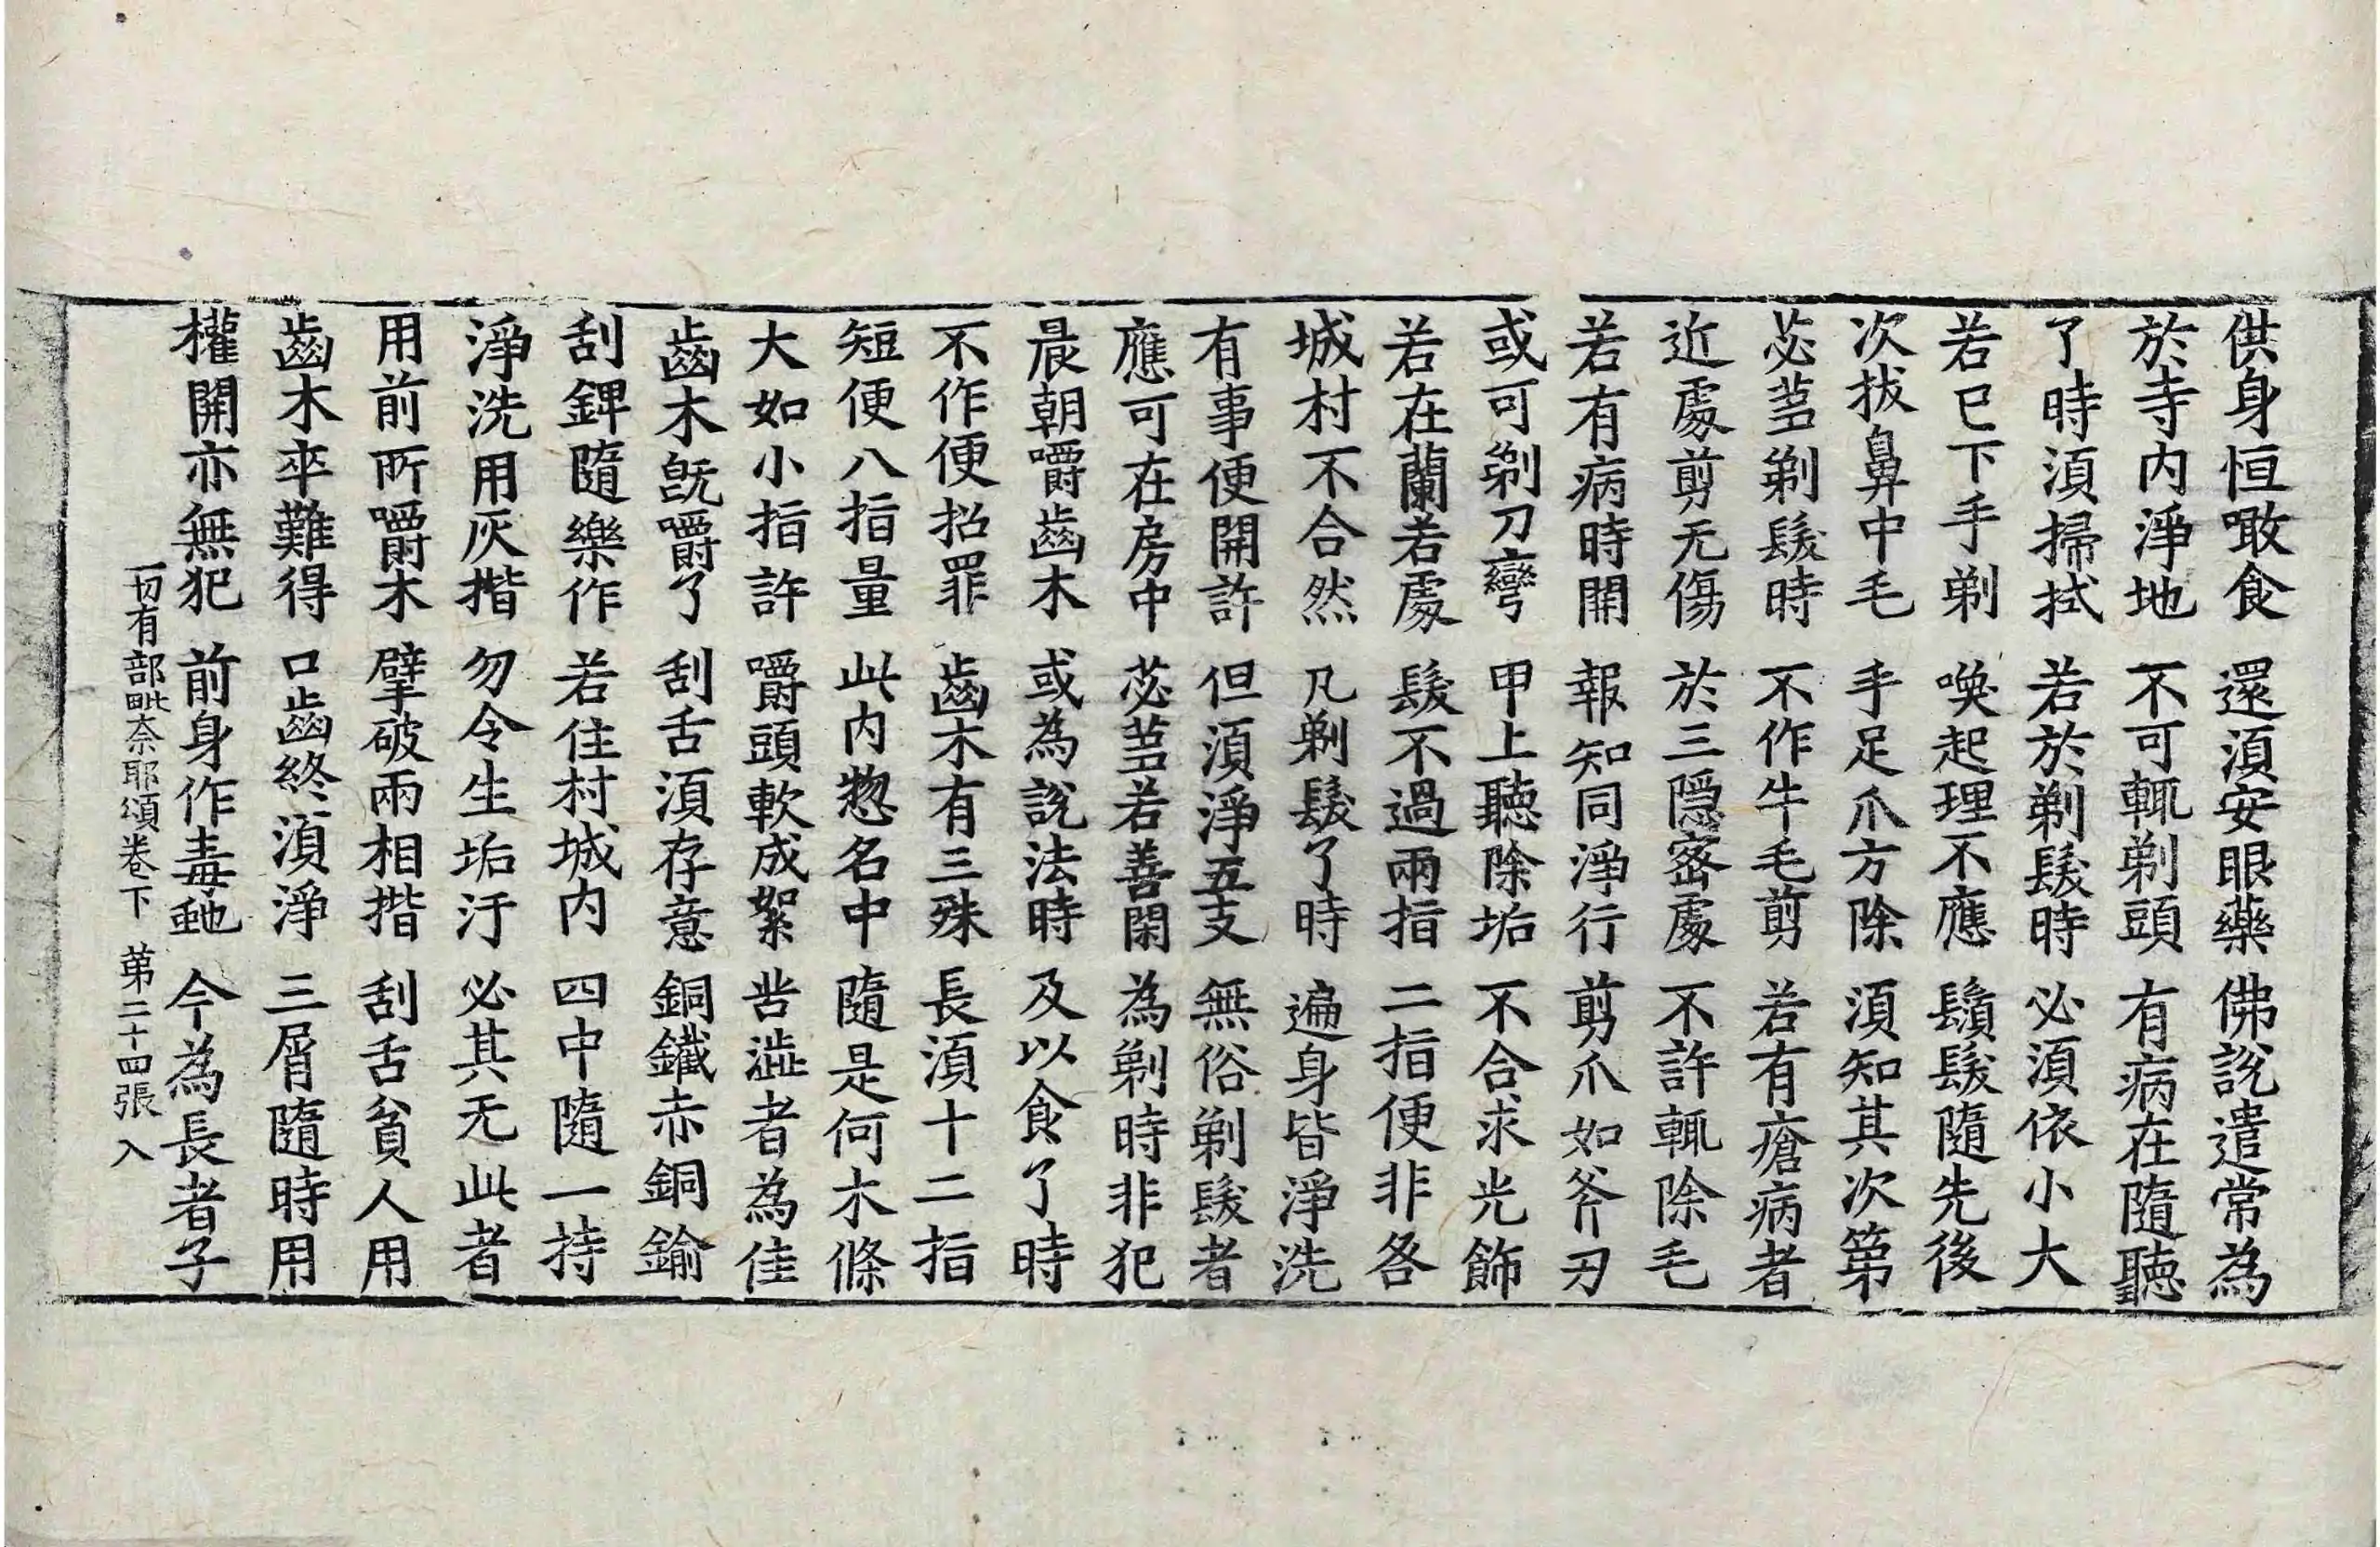 供身恒噉食 還須安眼藥 佛說遣常為
於寺內淨地 不可輒剃頭 有病在隨聽
了時須掃拭 若於剃髮時 必須依小大
若已下手剃 喚起理不應 鬚髮隨先後
次拔鼻中毛 手足爪方除 須知其次第
苾蒭剃髮時 不作牛毛剪 若有瘡病者
近處剪无傷 於三隱密處 不許輒除毛
若有病時開 報知同淨行 剪爪如斧刃
或可剃刀彎 甲上聽除垢 不合求光飾
若在蘭若處 髮不過兩指 二指便非各
城村不合然 凡剃髮了時 遍身皆淨洗
有事便開許 但須淨五支 無俗剃髮者
應可在房中 苾蒭若善閑 為剃時非犯
晨朝嚼齒木 或為說法時 及以食了時
不作便招罪 齒木有三殊 長須十二指
短便八指量 此內惣名中 隨是何木條
大如小指許 嚼頭軟成絮 苦澁者為佳
齒木旣嚼了 刮舌須存意 銅鐵赤銅鍮
刮錍隨樂作 若住村城內 四中隨一持
淨洗用灰揩 勿令生垢汙 必其无此者
用前所嚼木 擘破兩相揩 刮舌貧人用
齒木卒難得 口齒終須淨 三屑隨時用
權開亦無犯 前身作毒虵 今為長者子
一切有部毗奈耶頌卷下 苐二十四張 入